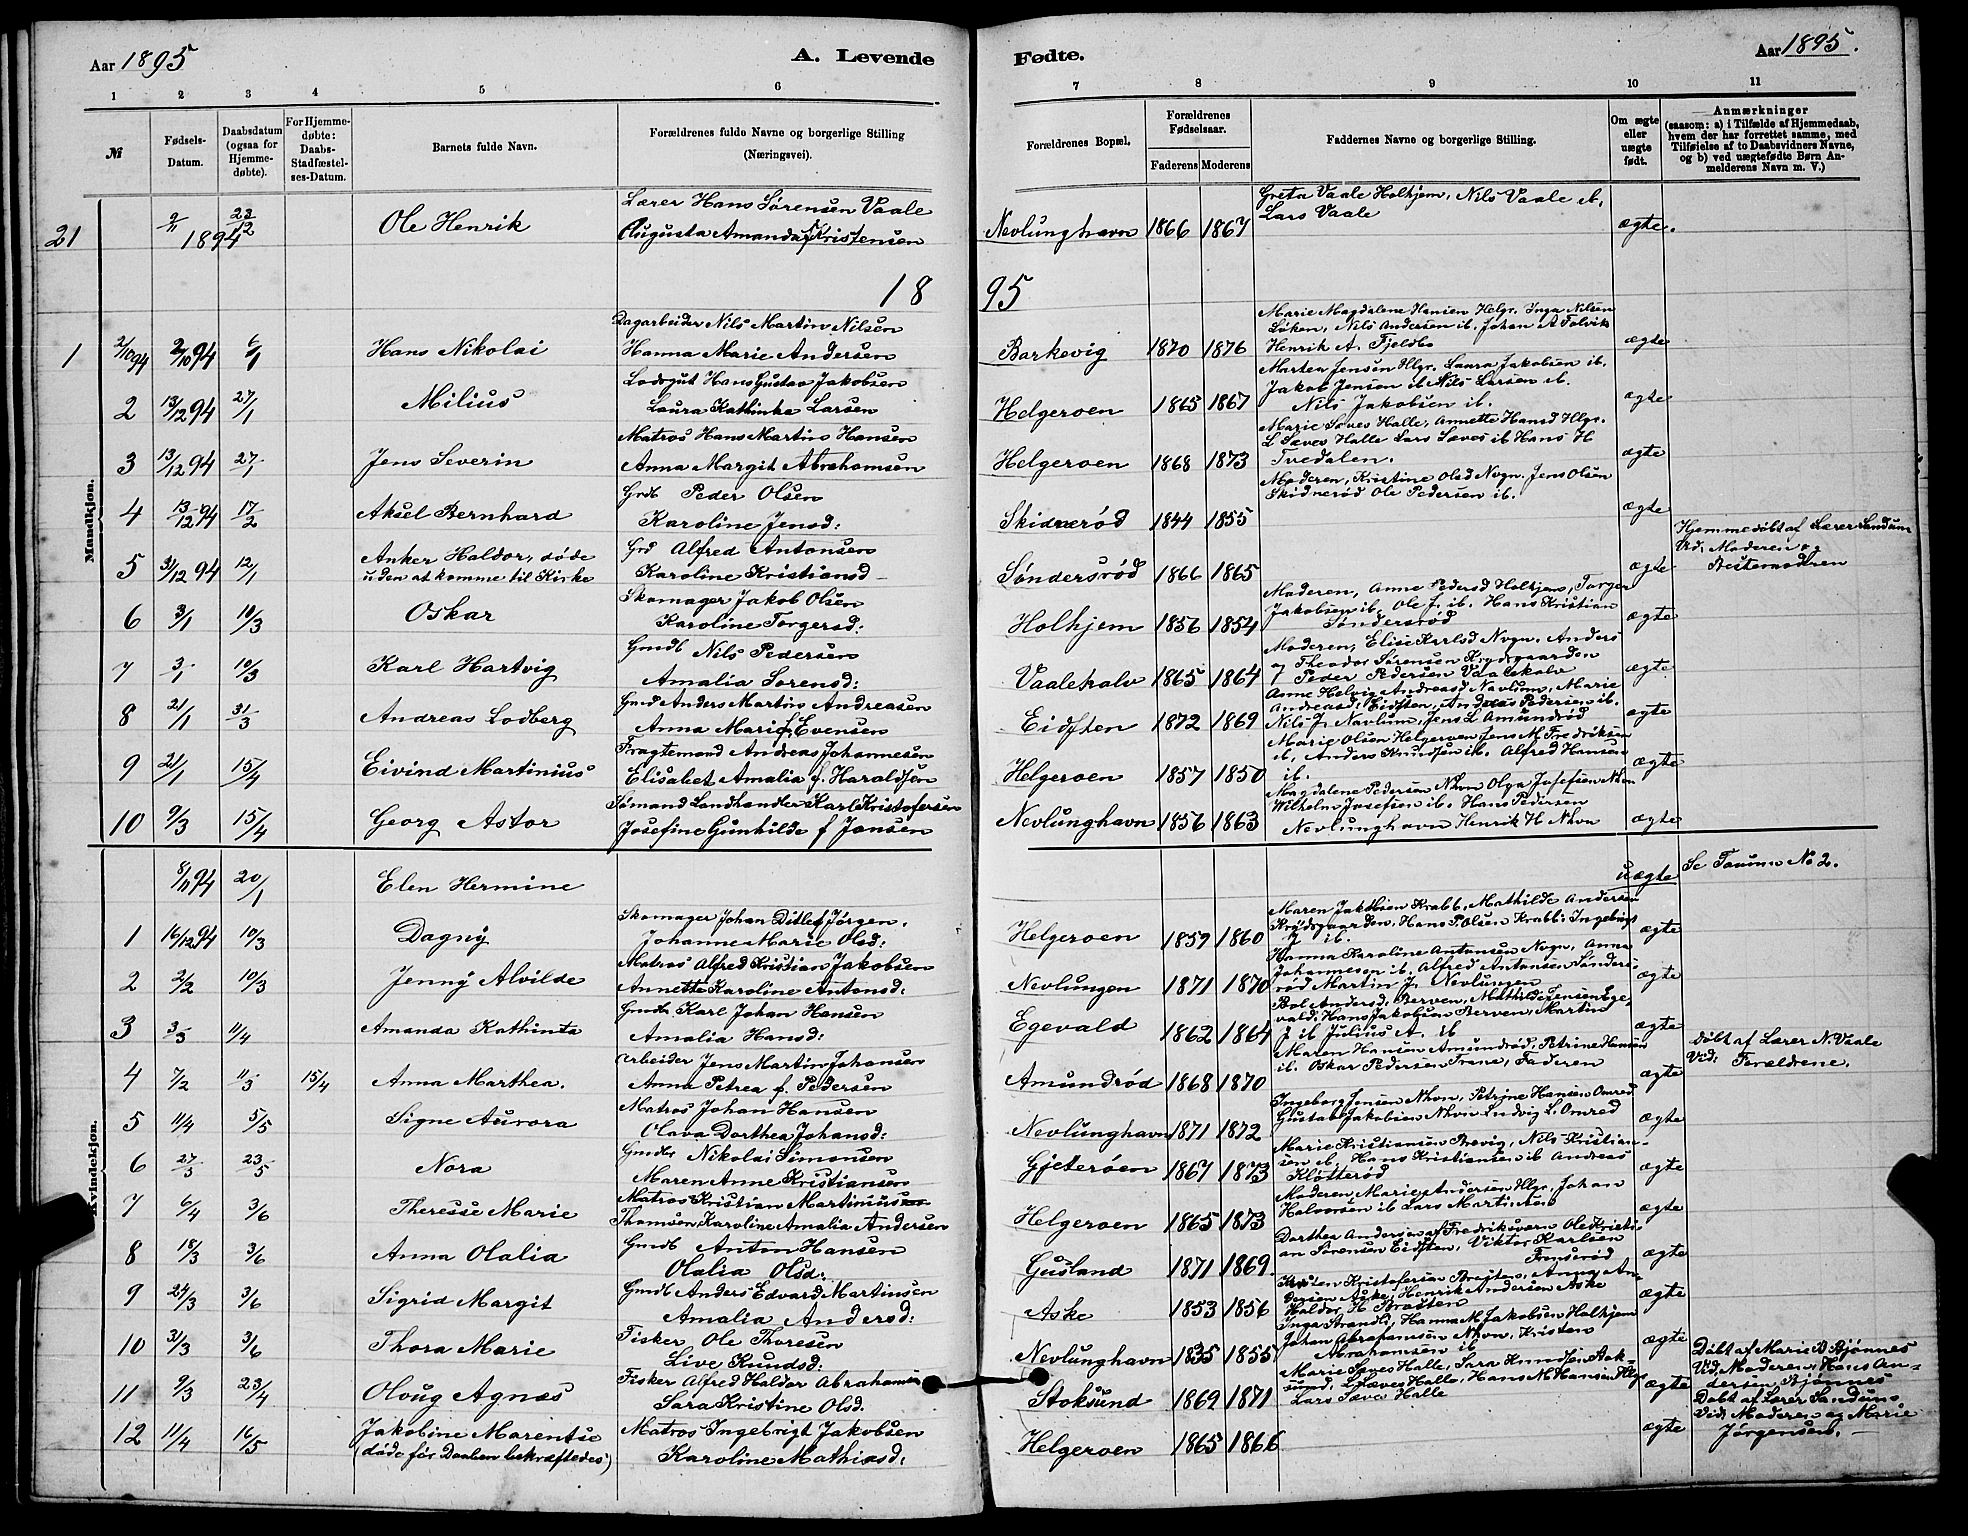 Aar 1895
A. Levende
Fødte.
Aar 1895.
1 2 3 4 5 6 7 8 9 10 11
№
Fødsels-Datum.
Daabsdatum (ogsaa for Hjemme-døbte).
For Hjemme-døbte: Daabs-Stadfæstel-ses-Datum.
Barnets fulde Navn.
Forældrenes fulde Navne og borgerlige Stilling (Næringsvei).
Forældrenes Bopæl.
Forældrenes Fødselsaar.
Faderens Moderens
Faddernes Navne og borgerlige Stilling.
Om ægte eller uægte født.
Anmærkninger
(saasom: a) i Tilfælde af Hjemmedaab, hvem der har forrettet samme, med Tilføielse af to Daabsvidners Navne, og b) ved uægtefødte Børn Anmelderens Navn m. V.)
Lærer Hans Sørensen Vaale Greta Vaale Holkjem, Nils Vaale ib,
21 2/11 1894 23/12 Ole Henrik Augusta Amanda f Kristensen Nevlunghavn 1866 1867 Lars Vaale ægte.
18 95
Mandkjøn.
Dagarbeider Nils Martin Nilsen Marie Magdalene Hansen Helgr. Inga Nilsen
Løken, Nils Andersen ib. Johan A Folvik
1 2/10 94 2/10 94 6/1 Hans Nikolai Hanna Marie Andersen Barkevig 1870 1876 Henrik A. Fjeldbo ægte
Lodsgut Hans Gustav Jakobsen Martea Jensen Hlgr. Laura Jakobsen ib.
Jakob Jensen ib Nils Larsen ib.
2 13/12 94 27/1 Milius Laura Kathinka Larsen Helgeroen 1865 1867 Nils Jakobsen ib. ægte
Matros Hans Martin Hansen Marie Sæves Halle, Annette Hansd Hlgr.
L Sæves Halle Lars Sæves ib Hans H
3 13/12 94 27/1 Jens Severin Anna Margit Abrahamsen Helgeroen 1868 1873 Tvedalen. ægte
Grdb Peder Olsen Moderen, Kristine Olsd Nvgn. Jens Olsen
Skidnerød Ole Pedersen ib.
4 13/12 94 17/2 Aksel Bernhard Karoline Jensd: Skidnerød 1844 1855 ægte
Anker Haldor, døde Grd Alfred Antonsen Hjemmedøbt af Lærer Sandum
Vid. Moderen og
5 31/12 94 12/1 uden at komme til Kirke Karoline Kristiansd Søndersrød 1866 1865 ægte Bestemoderen
Skomager Jakob Olsen Moderen, Anne Pedersd Holkjem, Torger
Jakobsen ib, Ole J. ib. Hans Kristian
6 3/1 10/3 Oskar Karoline Torgersd: Holkjem 1856 1854 Søndersrød ægte
Gmdb Nils Pedersen Moderen, Elise Karlsd Nvgn. Anders
og Theodor Sørensen Krydsgaarden
7 3/1 10/3 Karl Hartvig Amalia Sørensd: Vaalehalv 1865 1864 Peder Pedersen Vaalehalv ægte
Gmd Anders Martin Andreasen Anne Helvig Andreasd Navlum, Marie
Andreasd, Eidsten, Andreas Pedersen ib.
8 21/1 31/3 Andreas Lodberg Anna Marie f Evensen Eidsten 1872 1869 Nils J. Navlum, Jens L Amundrød ægte
Fragtemand Andreas Johannesen Marie Olsen Helgeroen Jens M. Fredriksen
ib, Anders Knudsen ib. Alfred Hansen
9 21/1 15/4 Eivind Martinius Elisabet Amalia f. Haraldsen Helgeroen 1857 1850 ib. ægte
Sømand Landhandler Karl Kristofersen Magdalene Pedersen Nhvn Olga Josefsen Nhvn
Wilhelm Josefsen ib. Hans Pedersen
10 9/3 15/4 Georg Astor Josefine Gunhilde f Jansen Nevlunghavn 1856 1863 Nevlunghavn Henrik H Nhvn ægte
Kvindekjøn.
8/11 94 20/1 Elen Hermine uægte Se Taum No 2.
Skomager Johan Ditlef Jørgen. Maren Jakobsen Krabb, Mathilde Andersen
Brødsgaarden, Hans P. Olsen Krabb: Ingebrigt
1 16/12 94 10/3 Dagny Johanne Marie Olsd: Helgeroen 1859 1860 J ib. ægte
Matros Alfred Kristian Jakobsen Hanna Karoline Antonsen Nvgn, Anna
Johannesen ib. Alfred Antonsen Sønders-
2 2/2 10/3 Jenny Alvilde Annette Karoline Antonsd: Nevlungen 1871 1870 rød Martin J. Nevlungen ægte
Gmdb Karl Johan Hansen Bol Andersd, Berven, Mathilde Jensen Ege-
vald, Hans Jakobsen Berven, Martin
3 3/3 11/4 Amanda Kathinta Amalia Hansd: Egevald 1862 1864 J ib Julius A. ib ægte
Arbeider Jens Martin Johansen Maren Hansen Amundrød, Petrine Hansen Døbt af Lærer N. Vaale
4 7/2 11/3 15/4 Anna Marthea. Anna Petrea f. Pedersen Amundrød 1868 1870 ib. Oskar Pedersen Trane, Faderen ægte Vid: Foreldrene.
Matros Johan Hansen Ingeborg Jensen Nhvn, Petrine Hansen Omred
5 11/4 5/5 Signe Aurora Olava Dorthea Johansd: Nevlunghavn 1871 1872 Gustav Jakobsen Nhvn Ludvig L. Omred ægte
Gmdb Nikolai Simonsen Marie Kristiansen Brevig, Nils Kristian-
sen ib, Hans Kristiansen ib Andreas
6 27/3 23/5 Nora Maren Anne Kristiansen Gjeterøen 1867 1873 Kløtterød ægte
Matros Kristian Martinius Moderen, Marie Andersen Hlgr. Johan
7 6/4 3/6 Theresse Marie Thomsen, Karoline Amalia Andersen Helgeroen 1865 1873 Halvorsen ib Lars Martinsen ægte
Gmdb Anton Hansen Dorthea Andersen af Fredriksværn Ole Kristi-
an Sørensen Eidsten, Viktor Karlsen
8 18/3 3/6 Anna Olalia Olalia Olsd: Gusland 1871 1869. ægte
Gmdb Anders Edvard Martinsen Kristen Kristofersen, Anna An-
dersen Aske, Henrik Andersen Aske
9 24/3 3/6 Sigrid Margit Amalia Andersd: Aske 1853 1856 Haldor H. ægte
Fisker Ole Thoresen Inga Strandli, Hanna M. Jakobsen Holkjem
Johan Abrahamsen Nhvn, Kristen
10 31/3 3/6 Thora Marie Live Knudsd: Nevlunghavn 1835 1855 Abrahamsen ib ægte Døbt af Marie D Bjønnes
Fisker Alfred Haldor Abrahamsen Marie Sæves Halle, Sara Knudsen Stok- Vid, Moderen, Hans An-
sund, L. Sæves Halle, Hans M Hansen Hlgr
11 9/3 23/4 Oloug Agnes Sara Kristine Olsd: Stoksund 1869 1871 Lars Sæves Halle ægte dersen Bjønnes
Jakobine Marentse Matros Ingebrigt Jakobsen Døbt af Lærer Sandum
Vid: Moderen og Marie
12 11/4 16/5 (døde før Daaben bekræftedes) Karoline Mathiasd: Helgeroen 1865 1866 ægte Jørgensen.